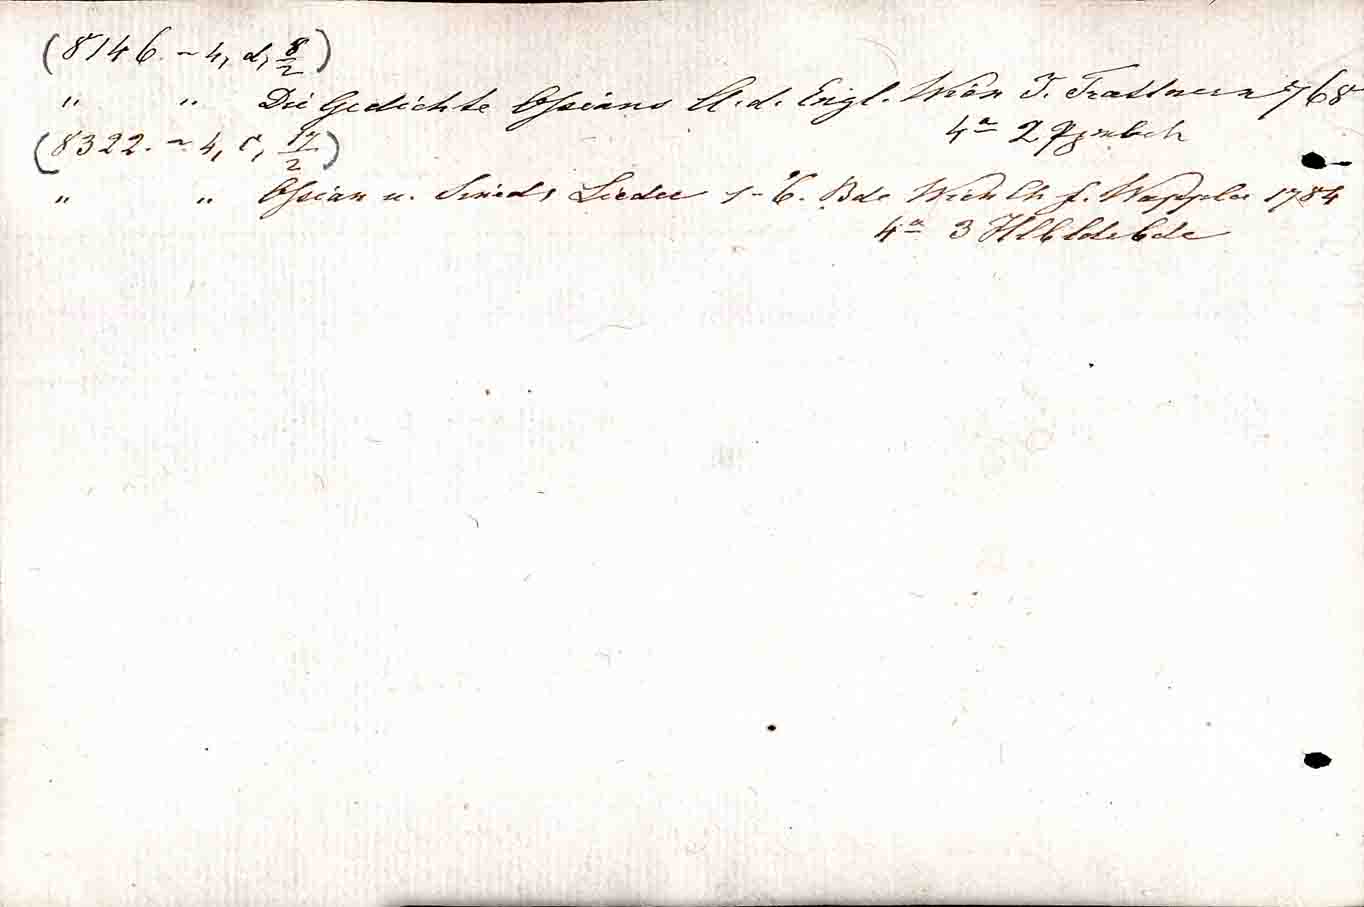 (8146. ~ 4, d, 8/2)
" " Die Gedichte Ossians A. d. Engl. Wien J. Trattnern 768
4° 2
(8322. ~ 4, c, 17/2)
" " Ossian u. Sineds Lieder 1-6. Bde Wien Ch. f. Wappler 1784
4° 3 Hlbldrbde